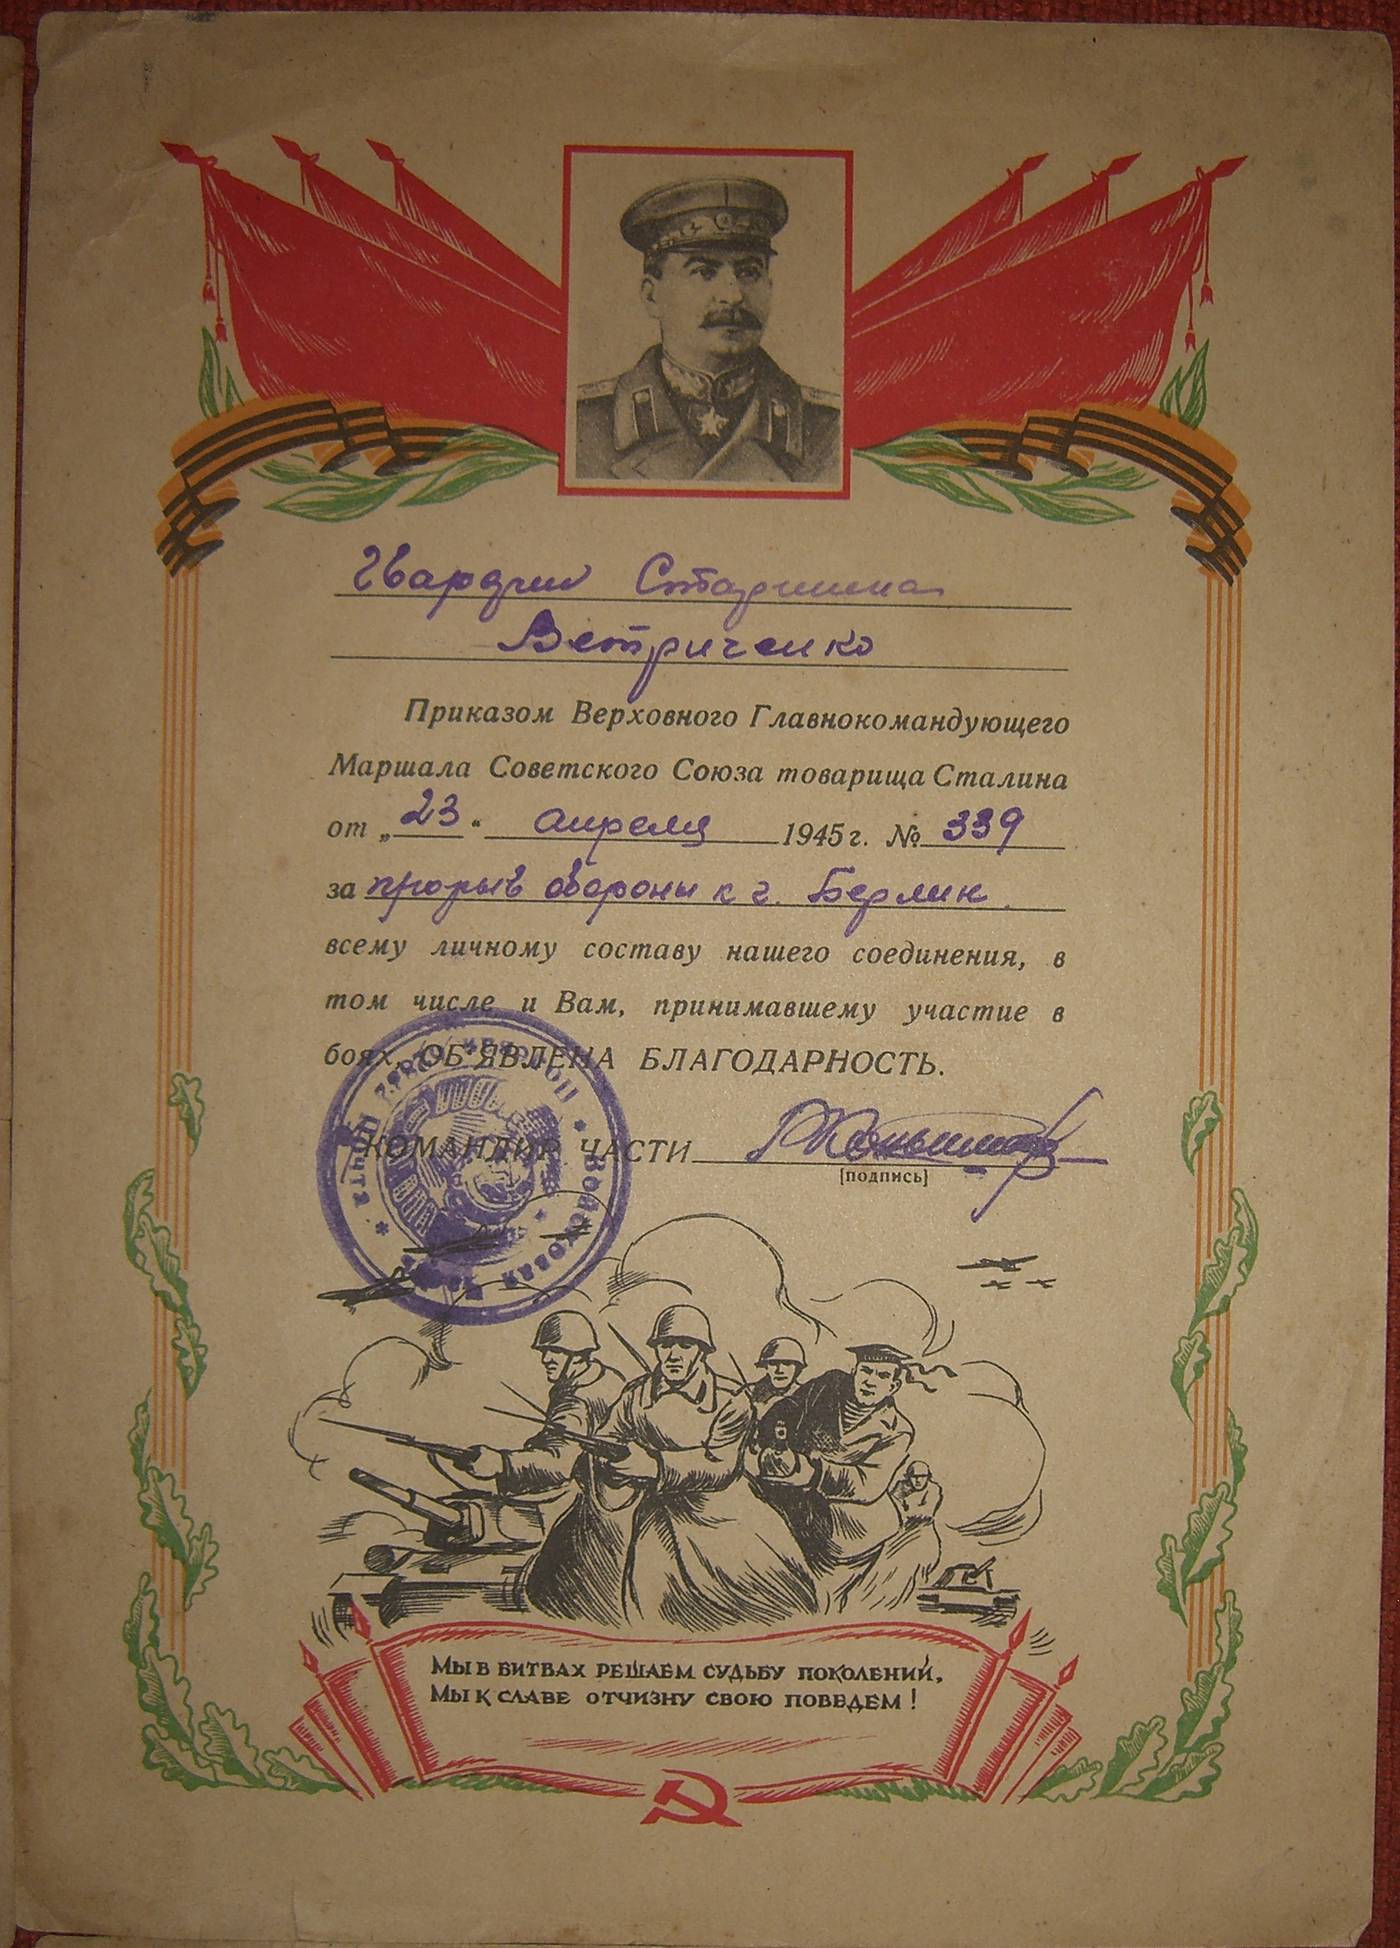 Гвардии Старшина
Ветриченко
Приказом Верховного Главнокомандующего
Маршала Советского Союза товарища Сталина
от „23“ апреля 1945 г. № 339
за прорыв обороны к г. Берлин.
всему личному составу нашего соединения, в
том числе и Вам, принимавшему участие в
боях, ОБ'ЯВЛЕНА БЛАГОДАРНОСТЬ.
КОМАНДИР ЧАСТИ
(подпись)
Войсковая часть
Полевая почта
МЫ В БИТВАХ РЕШАЕМ СУДЬБУ ПОКОЛЕНИЙ,
МЫ К СЛАВЕ ОТЧИЗНУ СВОЮ ПОВЕДЕМ!